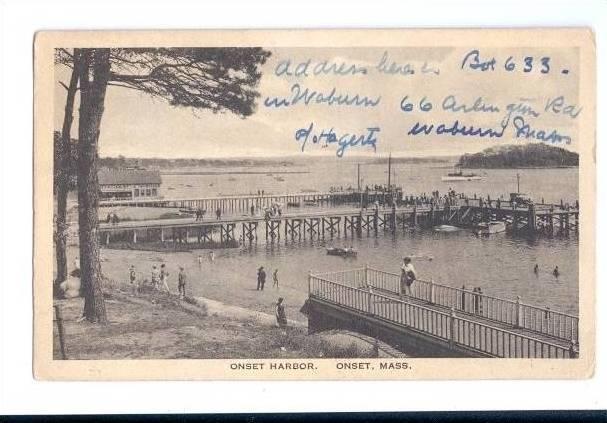 address here is Box 633.
in Woburn 66 Arlington Rd
% Hagerty Woburn Mass
ONSET HARBOR. ONSET, MASS.